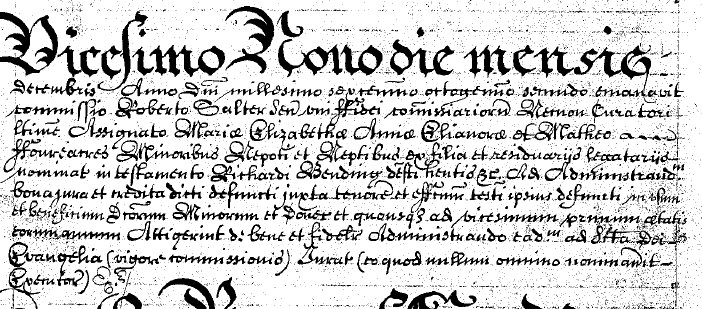 Vicesimo Nono die mensis
decembris Anno Dm millesimo septemmo octogemmo secundo emanavit
commissio Roberto Salter Sen uni ffidei commissariorm Necnon Curatori
ltime Assignato Mariæ Elizabethæ Annæ Elianoræ et Matheo
ffouracres Minoribus Nepoti et Neptibus ex filia et residuarijs legatarijs
nominat in testamento Richardi Bending defti hentis &c Ad Administrand
bona jura et credita dicti defuncti juxta tenorem et effcum testi ipsius defuncti in usum
et beneficium Dtorum Minorum et donec et quousq ad vicesimum primum ætatis
eorum annum Attigerint de bene et fidelr Administrando ead ad Sta Dei
Evangelia (vigore commissionis) Jurat (eo quod nullum omnino nominavit
Executor)